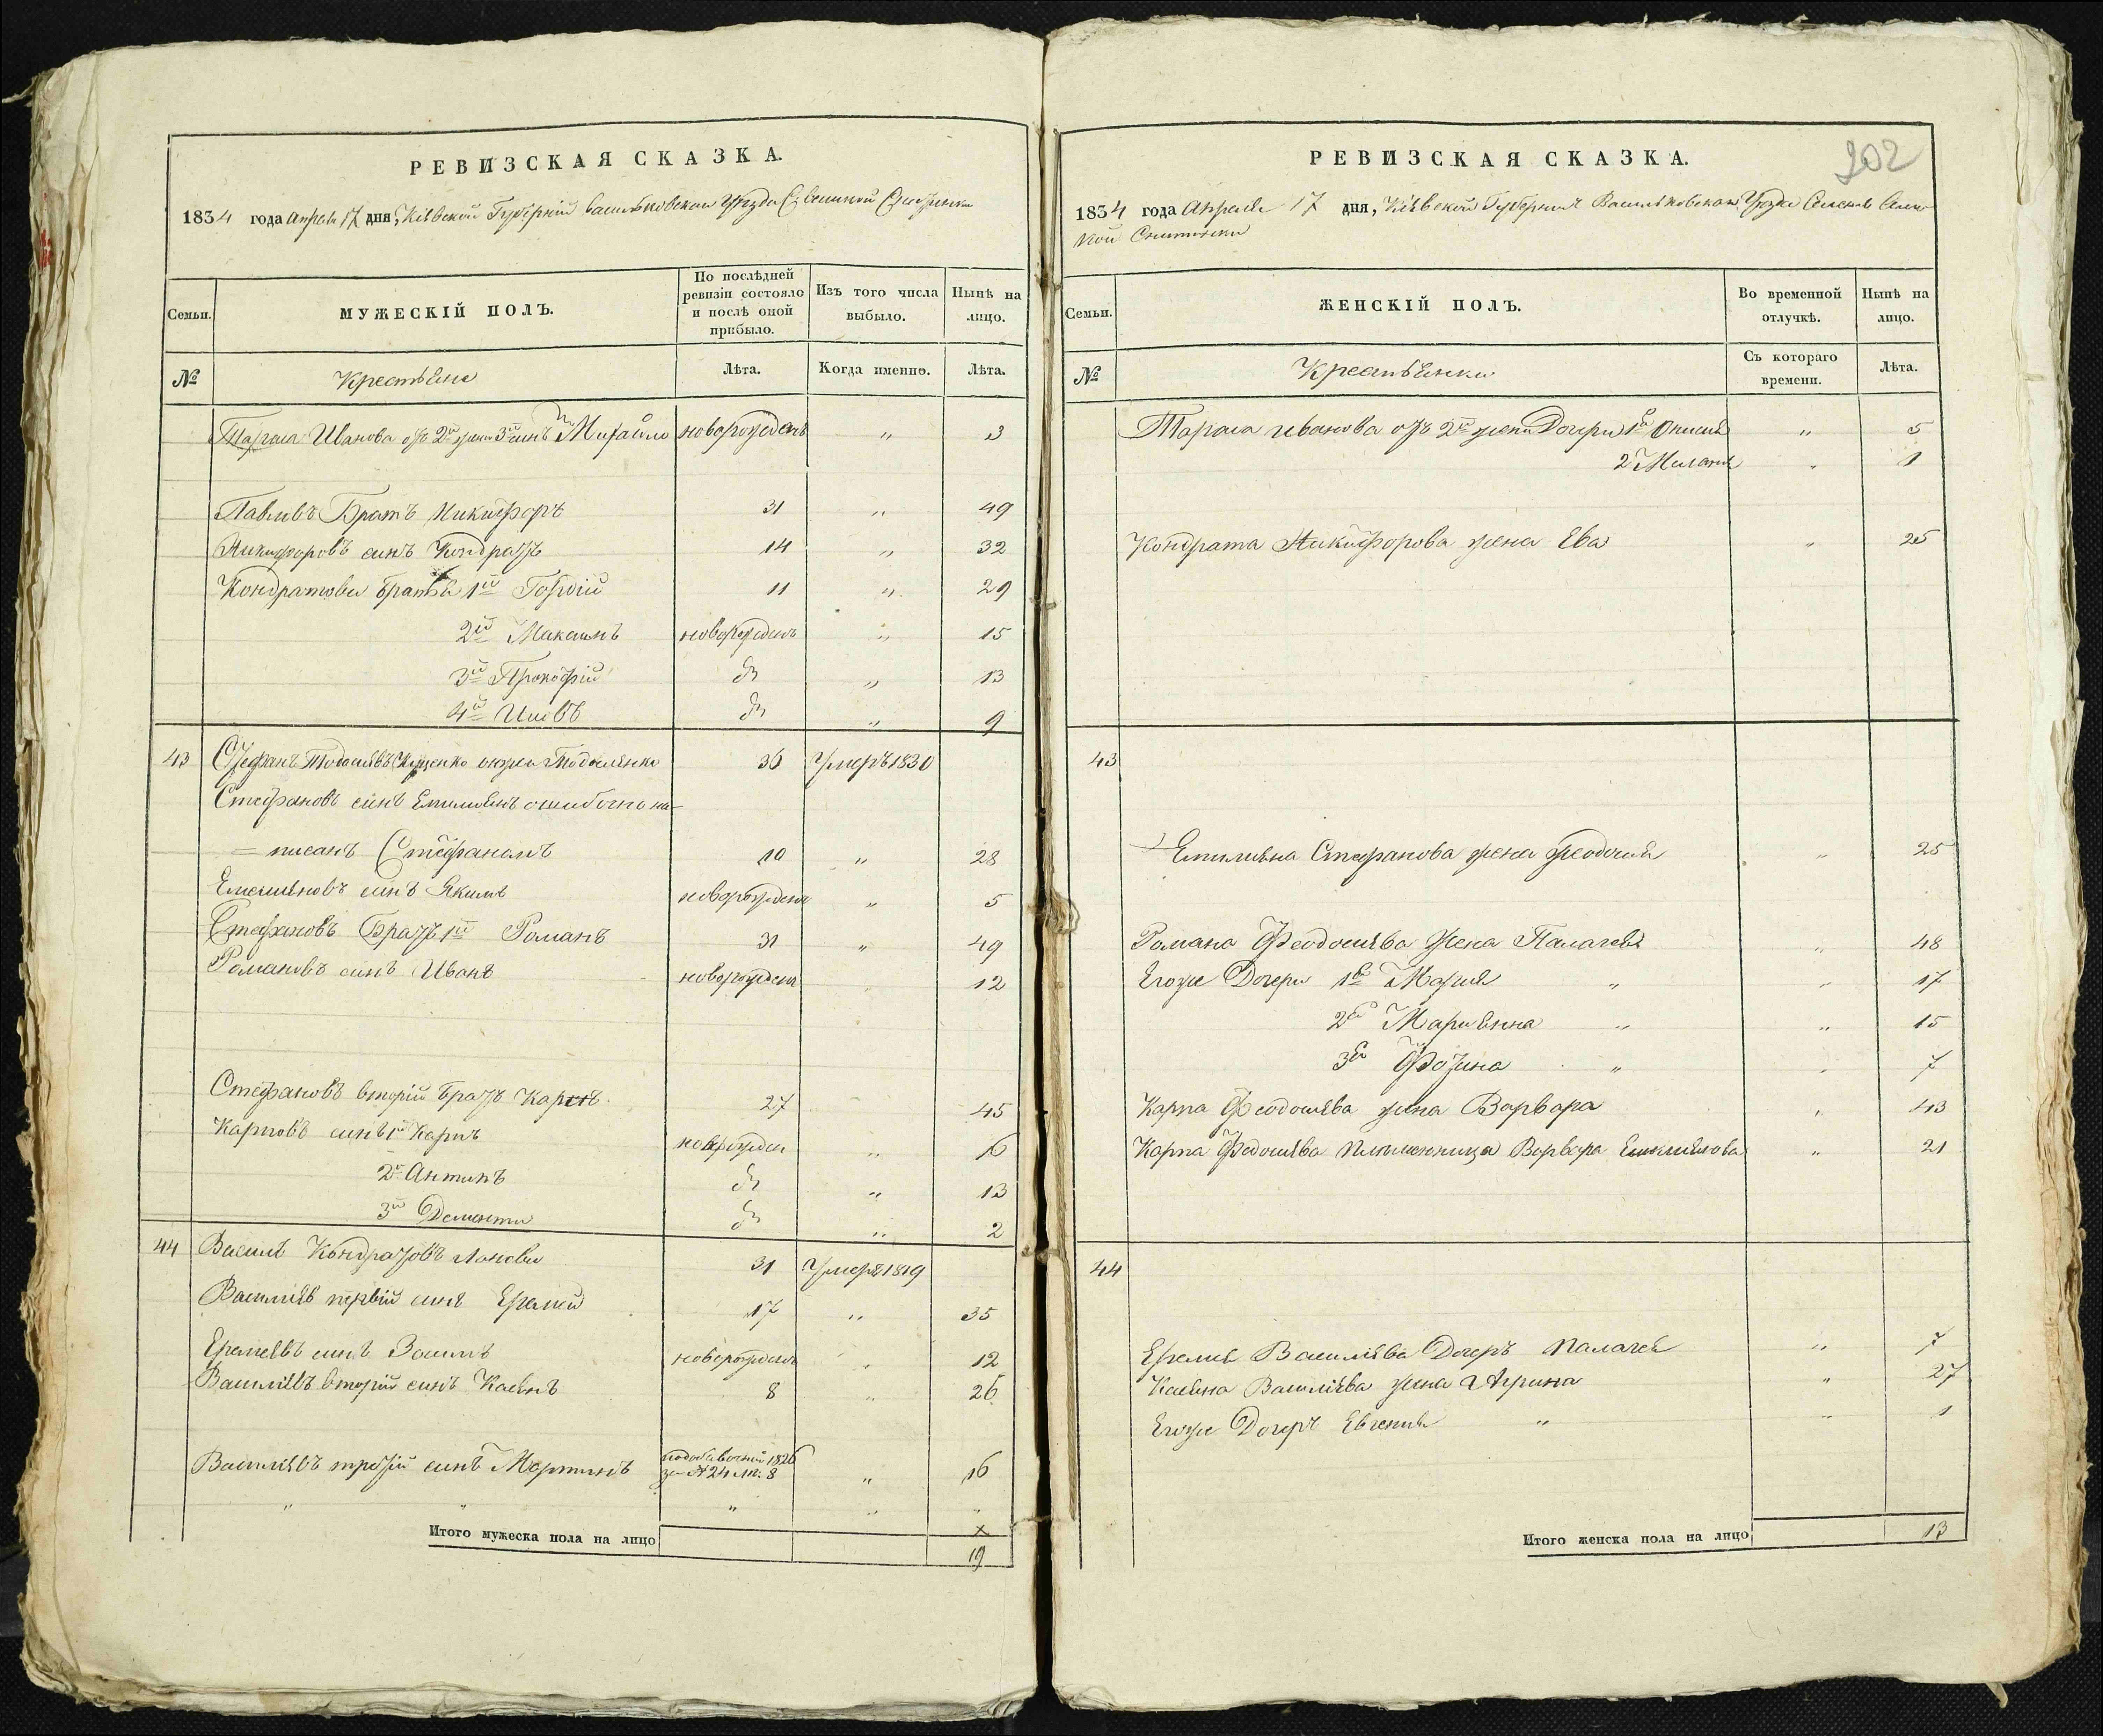 РЕВИЗСКАЯ СКАЗКА.
1834 года Апреля 17 дня, Кіевской Губерніи Васильковскаго Уезда С. Великой
Семьи. МУЖЕСКІЙ ПОЛЪ. По послѣдней ревизіи состояло и послѣ оной прибыло. Изъ того числа выбыло. Нынѣ на лицо.
№ Крестьяне Лѣта. Когда именно. Лѣта.
Тараса Иванова отъ 2й жены 3й синъ Михайло новорожденъ " 3
Павловъ Братъ Никифоръ 31 " 49
Никифоровъ синъ Кондратъ 14 " 32
Кондратовы братья 1й Гордій 11 " 29
2й Максимъ новорожденъ " 15
3й Прокофій " 13
4й Иовъ " 9
43 Стефанъ Тодосіевъ онже 36 Умеръ 1830
Стефановъ синъ Емилиянъ ошибочно на-
=писанъ Стефаномъ 10 " 28
Емилияновъ синъ Якимъ новорожденъ " 5
Стефановъ Братъ 1й Романъ 31 " 49
Романовъ синъ Иванъ новорожденъ " 12
Стефановъ вторій братъ Карпъ 27 45
Карповъ синъ 1й Карпъ новорожден " 16
2й Антипъ " 13
3й Дементи " 2
44 Василь Кондратовъ 31 Умеръ 1819
Василіевъ первій синъ Еремей 17 " 35
Еремеевъ синъ Зосимъ новорожденъ " 12
Василіевъ вторій синъ Касянъ 8 " 26
Василіевъ третій синъ Мартинъ 1826 за № 24 8 " 16
" " " " "
х
Итого мужеска пола на лицо 19
202
РЕВИЗСКАЯ СКАЗКА.
1834 года Апреля 17 дня, Кіевской Губерніи Васильковскаго Уезда Селенія Вели-
кой Снитинки
Семьи. ЖЕНСКІЙ ПОЛЪ. Во временной отлучкѣ. Нынѣ на лицо.
№ Крестьянки Съ котораго времени. Лѣта.
Тараса Иванова отъ 2й жены Дочери 1я " 5
2 Мелания " 1
Кондрата Никифорова жена Ева " 25
43
Емилияна Стефанова жена Феодосия " 25
Романа Феодосіева жена Палагея " 48
Егоже Дочери 1я Мария " " 17
2я Мариянна " " 15
3я " " 7
Карпа Феодосіева жена Варвара " 43
Карпа Федосіева племенница Варвара " 21
44
Еремея Василіева Дочеръ Палагея " 7
Касяна Василіева жена Ирина " 27
Егоже Дочеръ Евгения " " 1
Итого женска пола на лицо 13